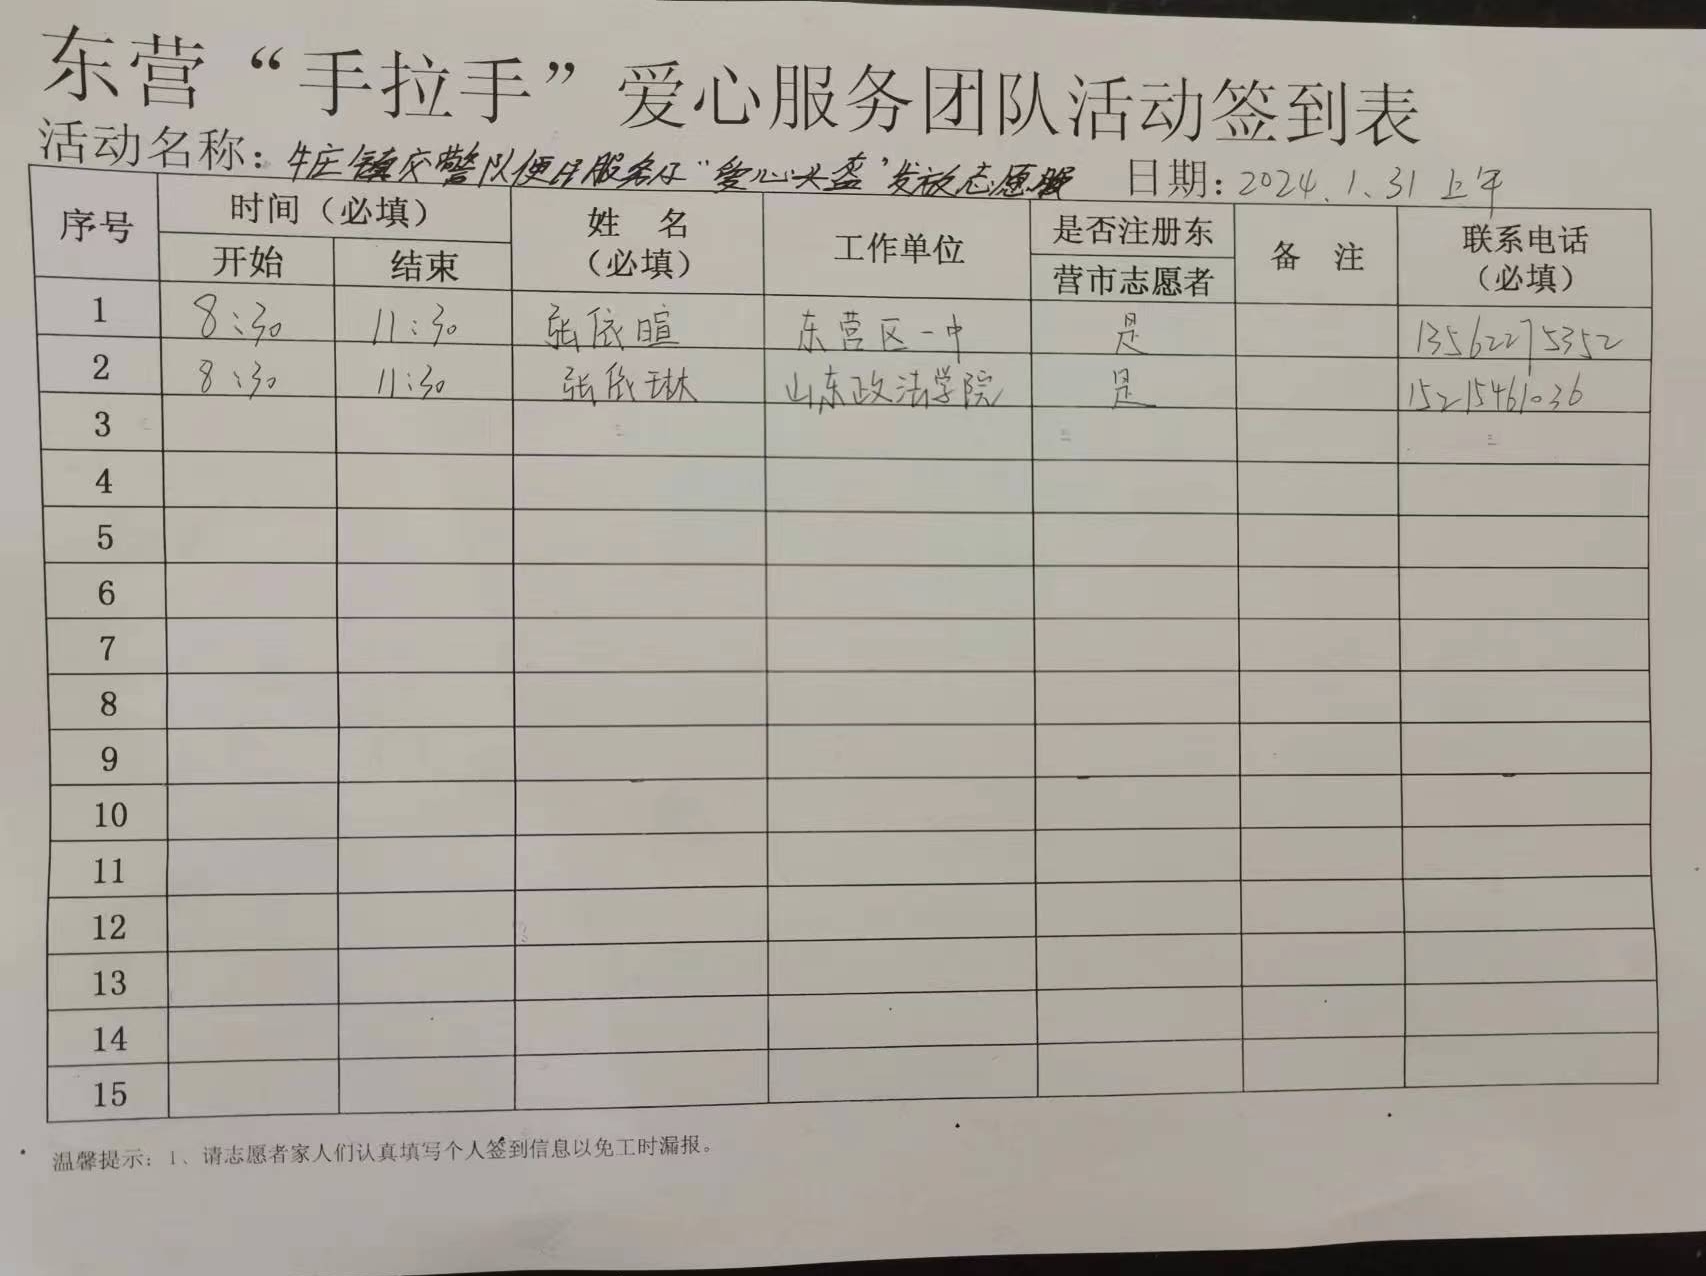 东营“手拉手”爱心服务团队活动签到表
活动名称：牛庄镇交警队便民服务及“爱心头盔”发放志愿服 日期：2024.1.31 上午
序号 时间（必填） 姓 名（必填） 工作单位 是否注册东营市志愿者 备 注 联系电话（必填）
开始 结束
1 8:30 11:30 张依暄 东营区一中 是 13562275352
2 8:30 11:30 张依琳 山东政法学院 是 15215461036
3
4
5
6
7
8
9
10
11
12
13
14
15
温馨提示：1、请志愿者家人们认真填写个人签到信息以免工时漏报。